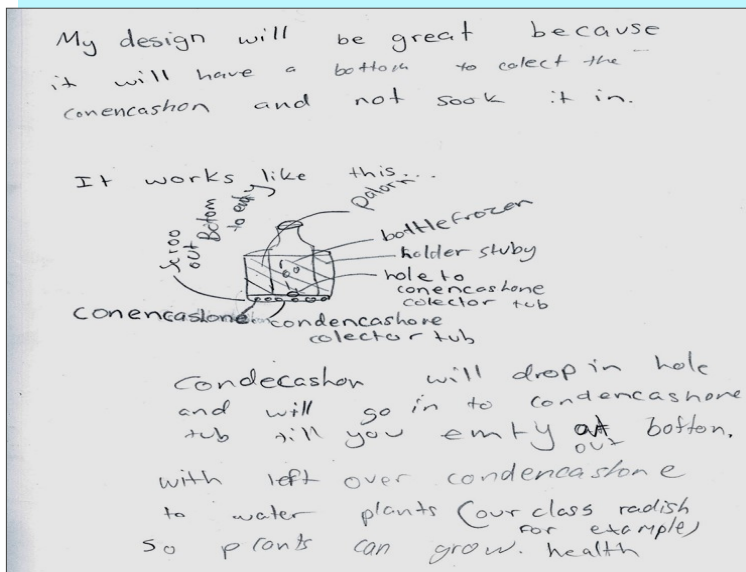 My design will be great because
it will have a bottom to colect the
conencashon and not sook it in.
It works like this...
scroo
out
Bottom
to
palorn
bottle frozen
holder stuby
hole to
conencashone
colector tub
conencaslone
condencashore
colector tub
Condecashon will drop in hole
and will go in to condencashone
tub till you emty out botton.
with left over condencastone
to water plants (our class radish
for example)
so plants can grow. health